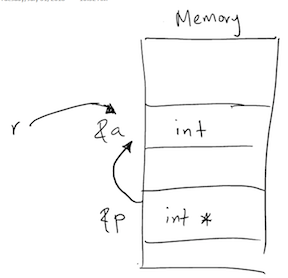 Memory
r
&a int
&p int *